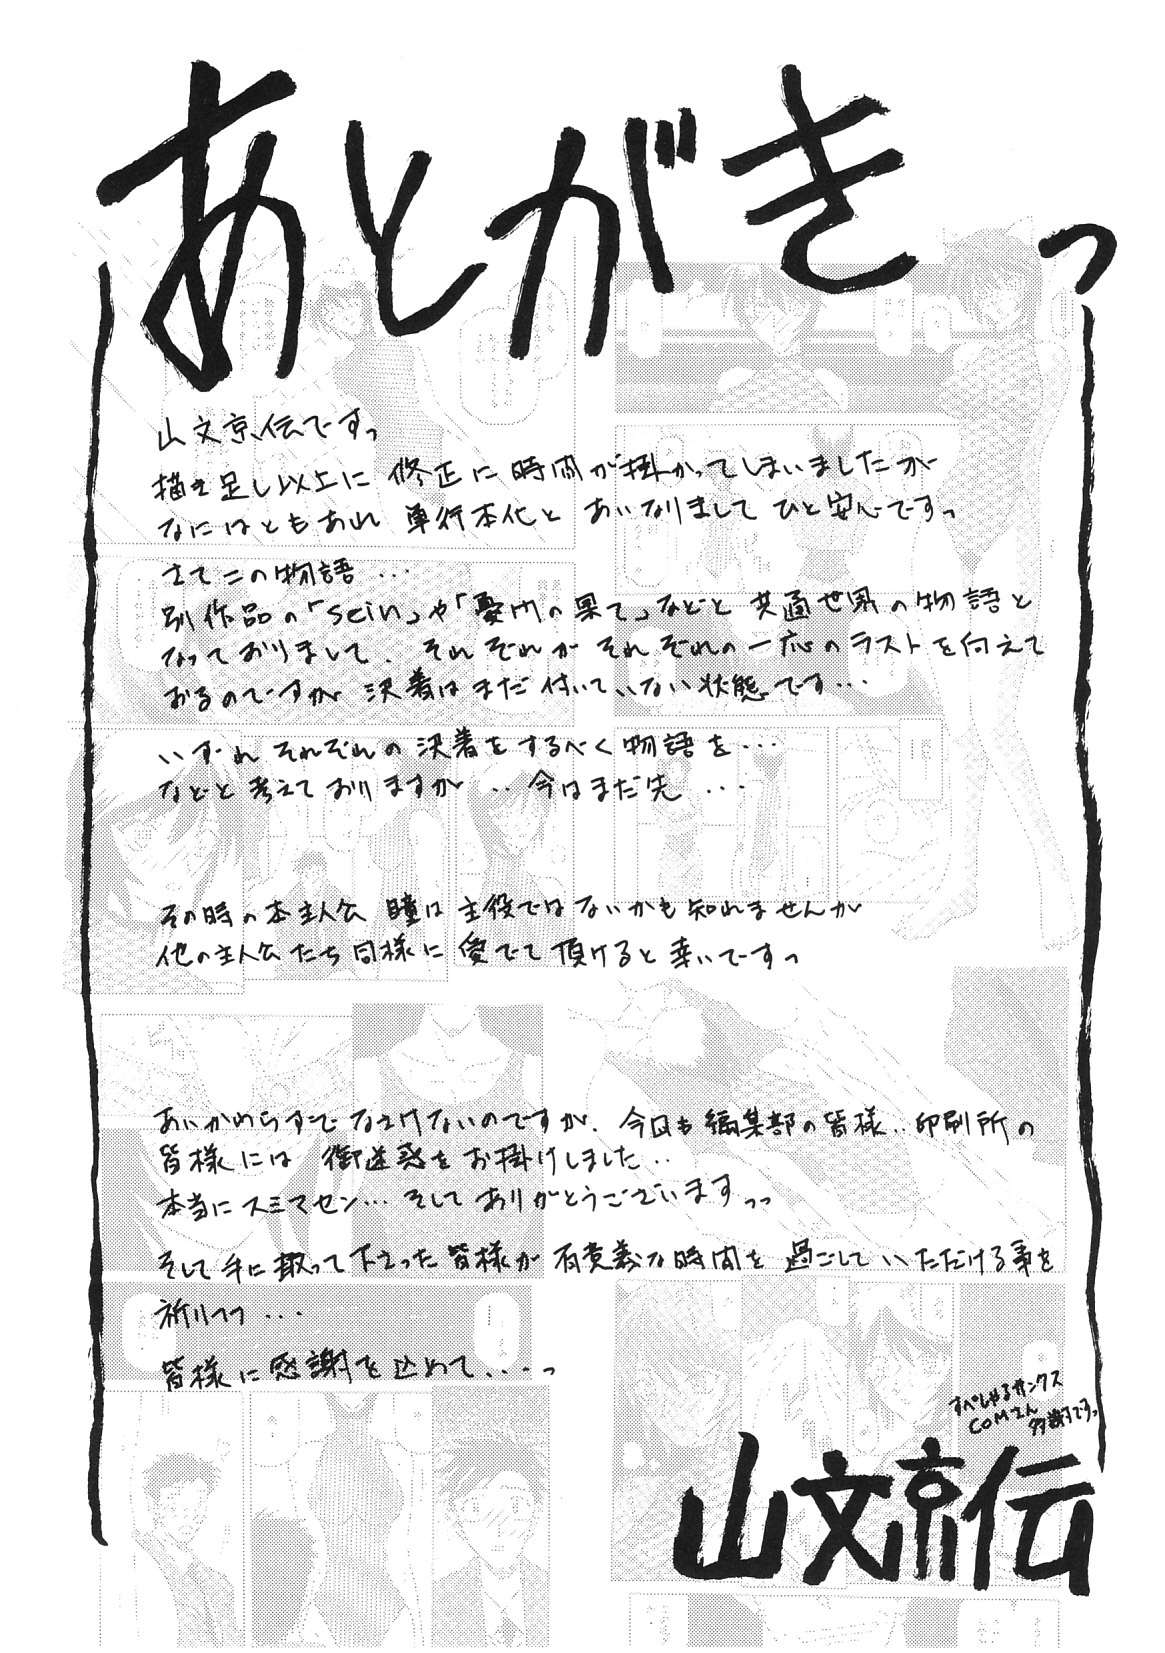 あとがきっ
山文京伝ですっ
描き足し以上に 修正に時間が掛かってしまいましたが
なにはともあれ 単行本化と あいなりまして ひと安心ですっ
さてこの物語･･･
別作品の「Sein」や「憂門の果て」などと 共通世界の物語と
なっておりまして、それぞれが それぞれの一応のラストを向えて
おるのですが 決着はまだ付いていない状態です･･･
いずれ それぞれの決着をするべく物語を･･･
などと考えておりますが ‥今はまだ先 ･･･
その時の本主人公 瞳は主役ではないかも知れませんが
他の主人公たち同様に 愛でて頂けると幸いですっ
あいかわらずで なさけないのですが、今回も編集部の皆様‥印刷所の
皆様には 御迷惑をお掛けしました‥
本当にスミマセン･･･そしてありがとうございますっっ
そして手に取って下さった皆様が 有意義な時間を 過ごしていただける事を
祈りつつ･･･
皆様に感謝を込めて･･･っ
すぺしゃるサンクス
COMさん 多謝ですっ
山文京伝